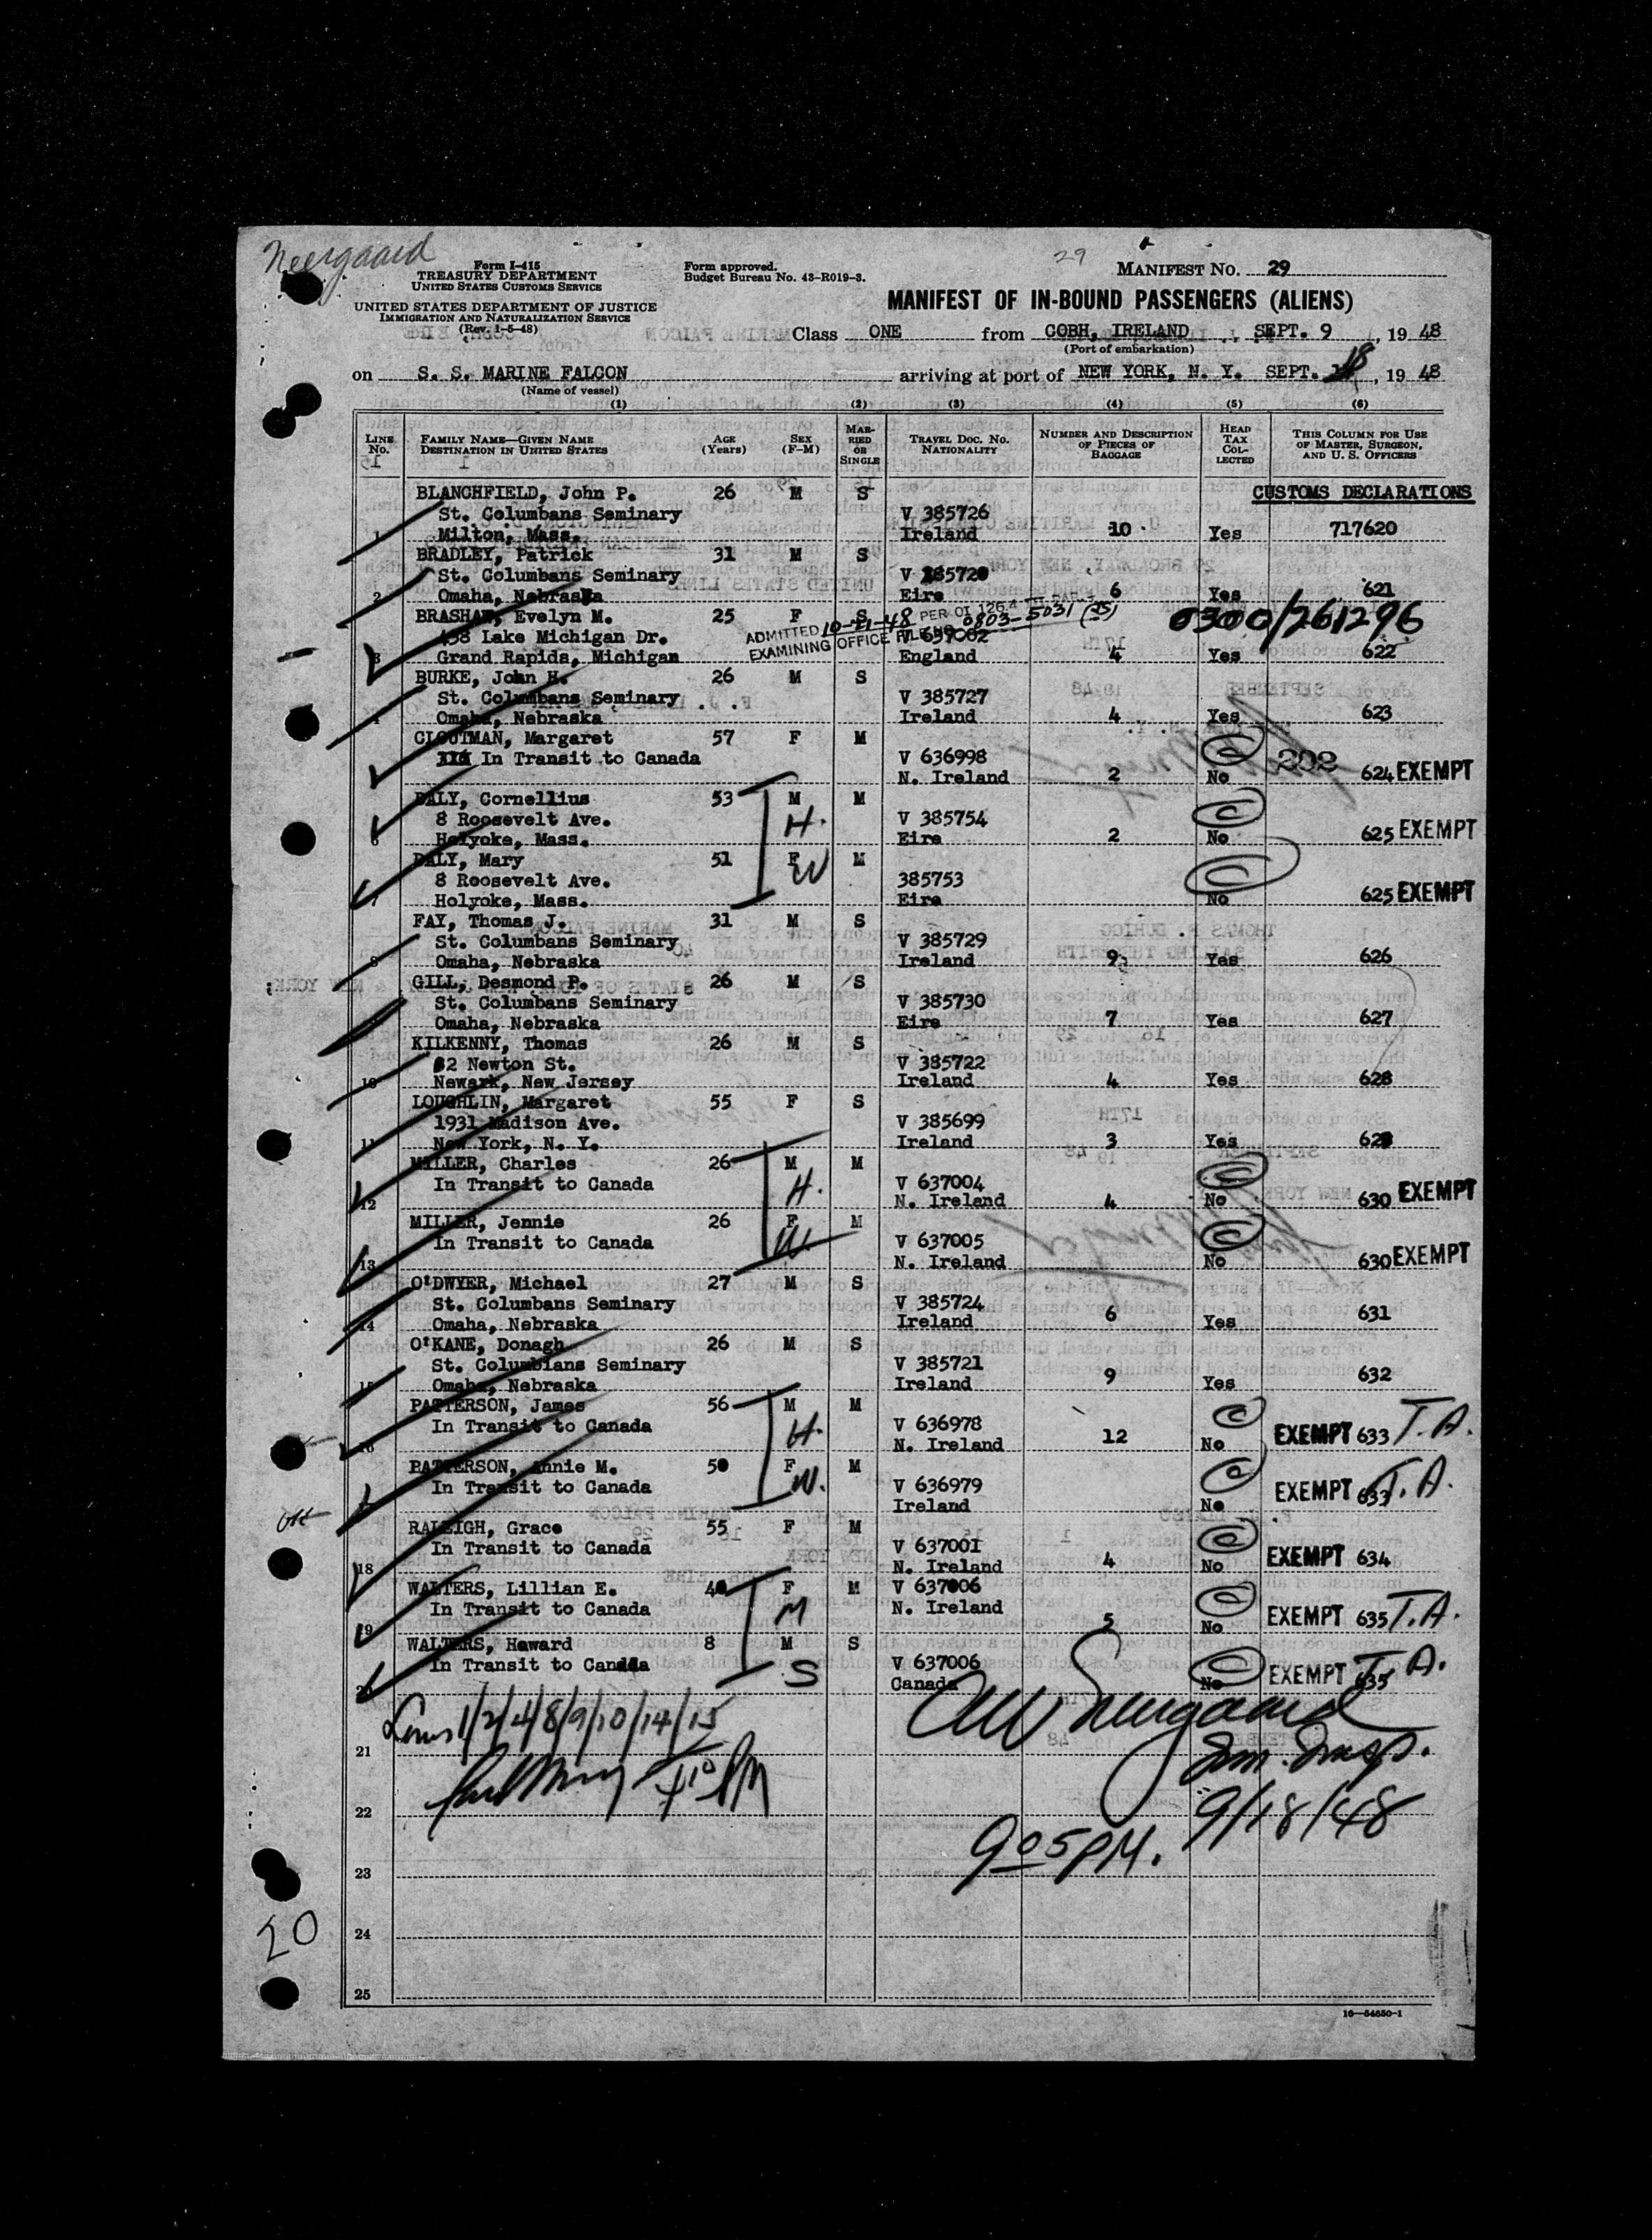 Neergaard
Form I-415
TREASURY DEPARTMENT
UNITED STATES CUSTOMS SERVICE
UNITED STATES DEPARTMENT OF JUSTICE
IMMIGRATION AND NATURALIZATION SERVICE
(Rev. 1-5-48)
Form approved.
Budget Bureau No. 43-R019-3.
29
MANIFEST No. 29
MANIFEST OF IN-BOUND PASSENGERS (ALIENS)
Class ONE from COBH, IRELAND, SEPT. 9, 1948
(Port of embarkation)
on S. S. MARINE FALCON arriving at port of NEW YORK, N. Y. SEPT. 18, 1948
(Name of vessel)
(1) (2) (3) (4) (5) (6)
LINE No. FAMILY NAME—GIVEN NAME DESTINATION IN UNITED STATES AGE (Years) SEX (F-M) MARRIED OR SINGLE TRAVEL DOC. NO. NATIONALITY NUMBER AND DESCRIPTION OF PIECES OF BAGGAGE HEAD TAX COLLECTED THIS COLUMN FOR USE OF MASTER, SURGEON, AND U. S. OFFICERS
CUSTOMS DECLARATIONS
BLANCHFIELD, John P. 26 M S
St. Columbans Seminary V 385726
1 Milton, Mass. Ireland 10 Yes 717620
BRADLEY, Patrick 31 M S
St. Columbans Seminary V 385720
2 Omaha, Nebraska Eire 6 Yes 621
BRASHAW, Evelyn M. 25 F S
ADMITTED 10-21-48 PER OI 126.4
EXAMINING OFFICE FILE NO. 0803-5031 (25)
0300/261296
458 Lake Michigan Dr. V 637002
3 Grand Rapids, Michigan England 4 Yes 622
BURKE, John H. 26 M S
St. Columbans Seminary V 385727
4 Omaha, Nebraska Ireland 4 Yes 623
CLOUTMAN, Margaret 57 F M
In Transit to Canada V 636998 202
N. Ireland 2 No 624 EXEMPT
DALY, Cornellius 53 M M
8 Roosevelt Ave. H. V 385754
6 Holyoke, Mass. Eire 2 No 625 EXEMPT
DALY, Mary 51 F M
8 Roosevelt Ave. W 385753
7 Holyoke, Mass. Eire No 625 EXEMPT
FAY, Thomas J. 31 M S
St. Columbans Seminary V 385729
8 Omaha, Nebraska Ireland 9 Yes 626
GILL, Desmond P. 26 M S
St. Columbans Seminary V 385730
Omaha, Nebraska Eire 7 Yes 627
KILKENNY, Thomas 26 M S
82 Newton St. V 385722
10 Newark, New Jersey Ireland 4 Yes 628
LOUGHLIN, Margaret 55 F S
1931 Madison Ave. V 385699
11 New York, N. Y. Ireland 3 Yes 629
MILLER, Charles 26 M M
In Transit to Canada H. V 637004
12 N. Ireland 4 No 630 EXEMPT
MILLER, Jennie 26 F M
In Transit to Canada W. V 637005
13 N. Ireland No 630 EXEMPT
O'DWYER, Michael 27 M S
St. Columbans Seminary V 385724
14 Omaha, Nebraska Ireland 6 Yes 631
O'KANE, Donagh 26 M S
St. Columbians Seminary V 385721
15 Omaha, Nebraska Ireland 9 Yes 632
PATTERSON, James 56 M M
In Transit to Canada H. V 636978
16 N. Ireland 12 No EXEMPT 633 T.A.
PATTERSON, Annie M. 50 F M
In Transit to Canada W. V 636979
Ireland No EXEMPT 633 T.A.
RALEIGH, Grace 55 F M
In Transit to Canada V 637001
18 N. Ireland 4 No EXEMPT 634
WALTERS, Lillian E. 40 F M V 637006
In Transit to Canada M N. Ireland
19 5 No EXEMPT 635 T.A.
WALTERS, Howard 8 M S
In Transit to Canada S V 637006
20 Canada No EXEMPT 635 T.A.
Lines 1/2/4/8/9/10/14/15
Neergaard
21 Imm. Insp.
22 9/18/48
9 05 PM.
23
20
24
25
16—54650-1